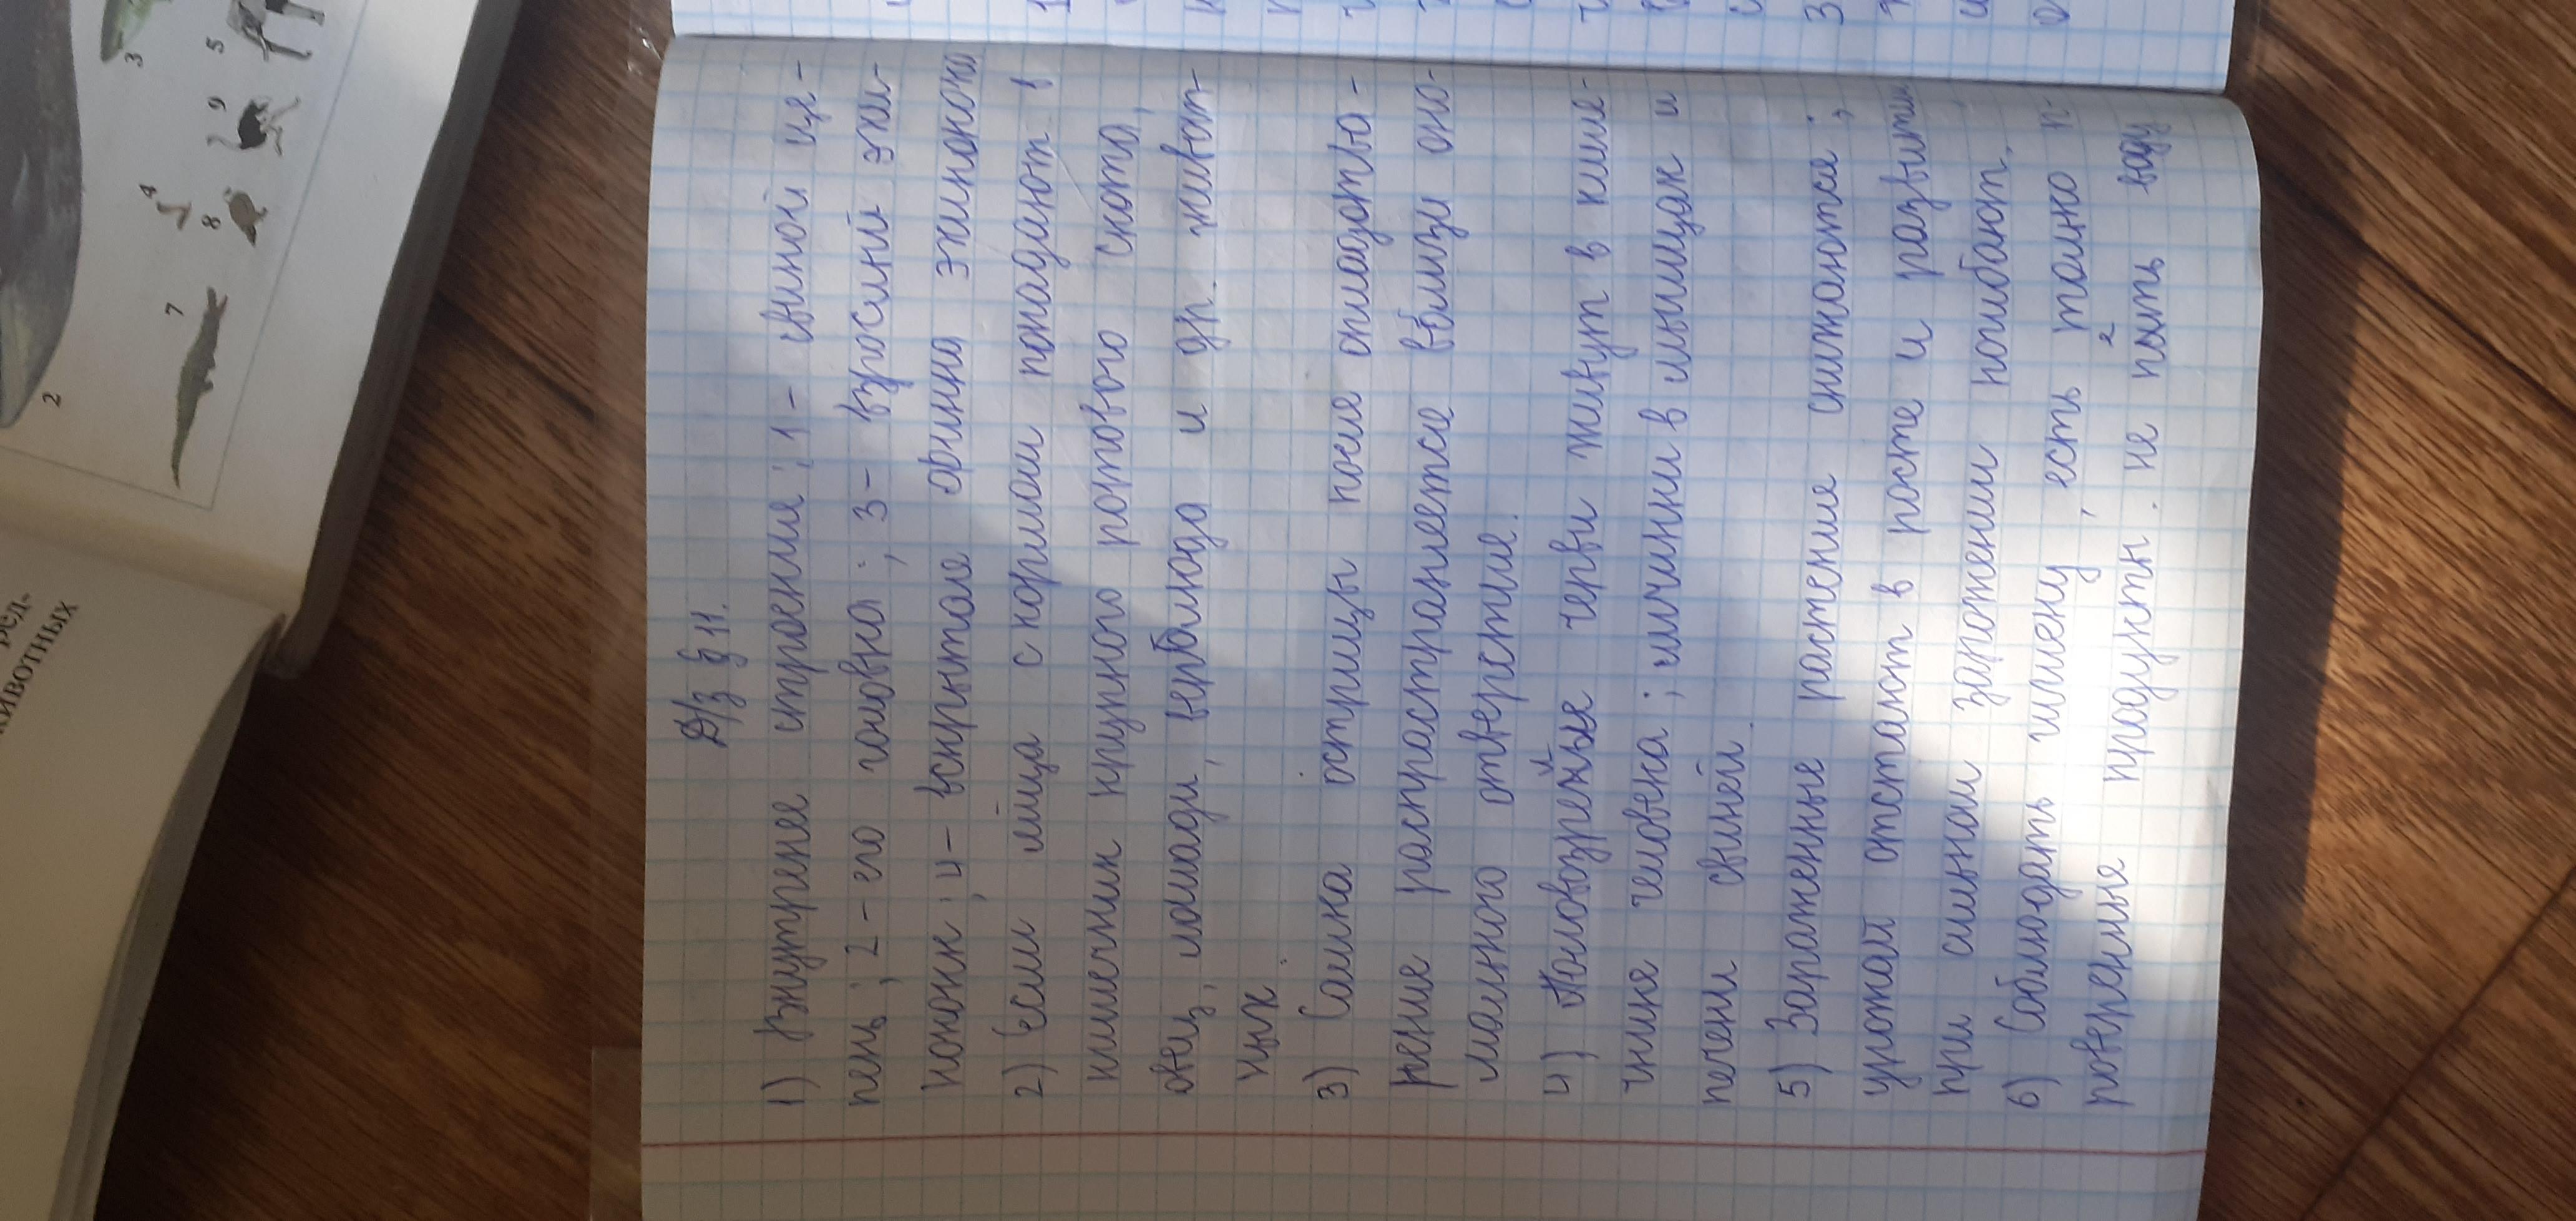 Д/з § 11.
1) Внутренее строение; 1 - свиной це-
пень; 2 - его головка; 3 - взрослый эхи-
нококк; 4 - вскрытая финна эхинококка
2) Если яйца с кормом попадают в
кишечник крупного рогового скота,
овец, лошади, верблюда и др. живот-
ных
3) Самка острицы после оплодотво-
рение распространяется вблизи ана-
льного отверстие.
4) Половозрелые черви живут в кише-
чнике человека; личинки в мышцах и
печени свиней.
5) Зараженные растение снижаются;
урожай отстают в росте и развитии
при сильном заражении погибают.
6) Соблюдать гигиену, есть только п-
роверенные продукты. не пить воду
ред-
животных
2
3
4
5
7
8
9
3